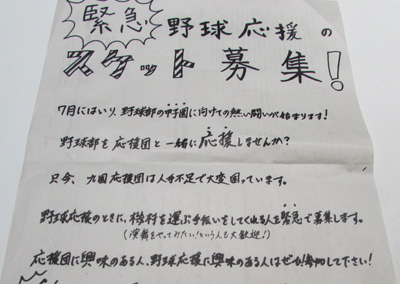 緊急 野球応援の
スケット募集!
7月にはいり、野球部の甲子園に向けての熱い闘いが始まります!
野球部を応援団と一緒に応援しませんか?
只今、九国応援団は人手不足で大変困っています。
野球応援のときに、機材を運ぶ手伝いをしてくれる人を緊急で募集します。
(演舞をやってみたい!という人も大歓迎!)
応援団に興味のある人、野球応援に興味のある人はぜひ参加して下さい!